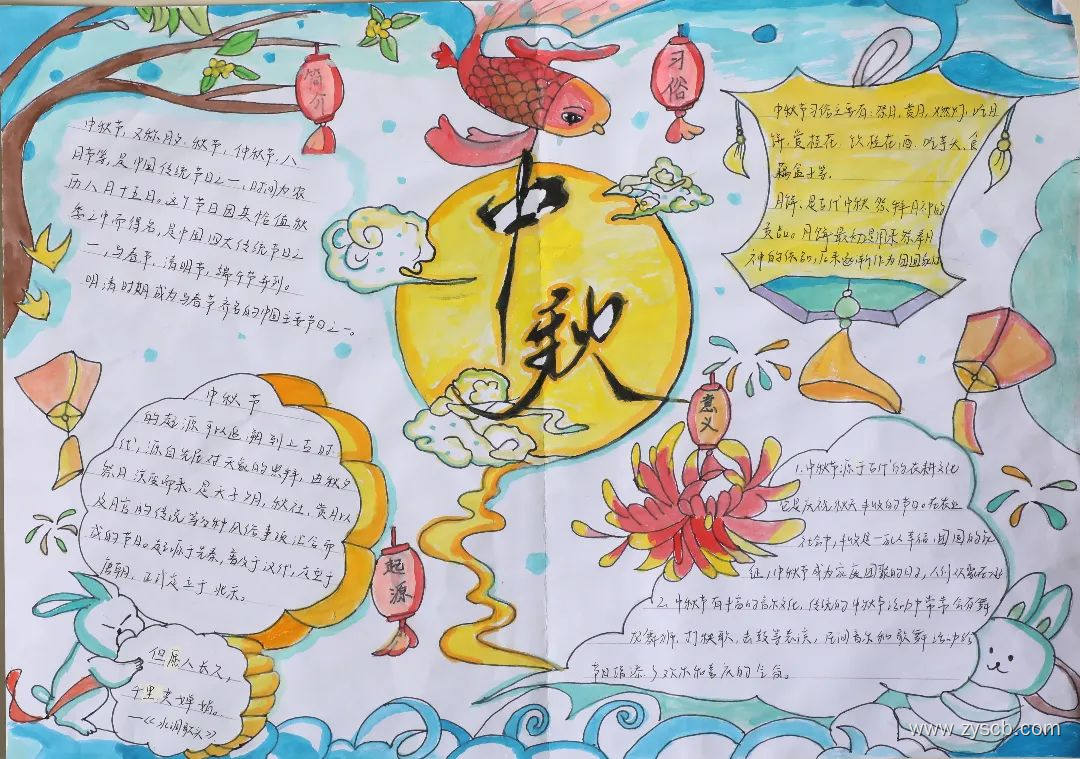 简介
中秋节,又称月夕、秋节、仲秋节、八
月节等,是中国传统节日之一,时间为农
历八月十五日。这个节日因其恰值秋
季之中而得名,是中国四大传统节日之
一,与春节、清明节、端午节并列。
明清时期成为与春节齐名的中国主要节日之一。
中秋
习俗
中秋节习俗主要有:祭月,赏月,燃灯,吃月
饼,赏桂花、饮桂花酒、吃芋头,食
藕盒子等。
月饼、是古代中秋祭拜月神的
贡品。月饼最初是用来祭奉月
神的供品,后来逐渐作为团圆
中秋节
的起源可以追溯到上古时
代,源自先民对天象的崇拜,由秋夕
祭月演变而来,是天子夕月,秋社,赏月以
及月宫的传说等多种风俗事项汇合而
成的节日。起源于先秦,普及于汉代,定型于
唐朝,
起源
但愿人长久,
千里共婵娟。
—《水调歌头》
意义
1.中秋节源于古代的农耕文化
它是庆祝秋天丰收的节日。在农业
社会中,丰收是
中秋节成为家庭团聚的日子,人们
2.中秋节有丰富的音乐文化,传统的中秋节活动中常常会有舞
龙舞狮、打秧歌、击鼓等表演,民间音乐和歌舞活动给
节日增添了欢乐和喜庆的气氛。
www.zyscb.com